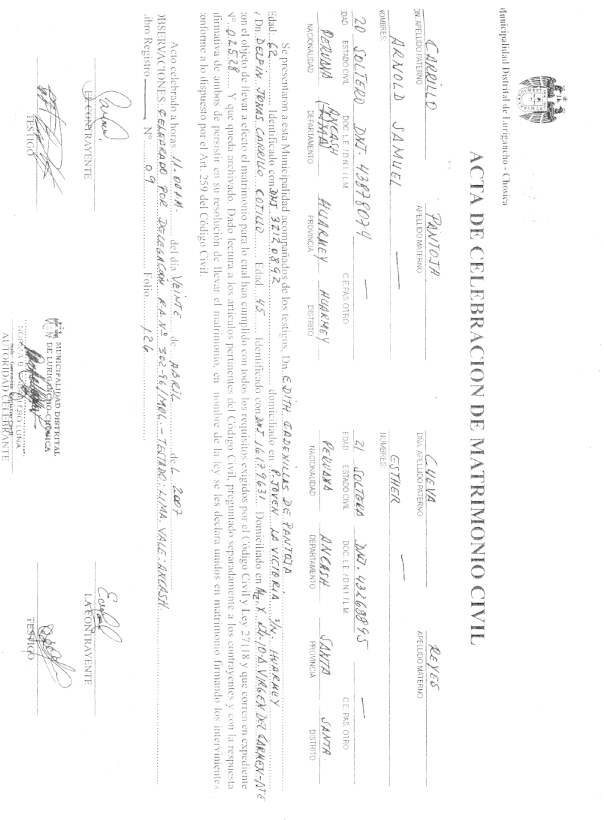 Municipalidad Distrital de Lurigancho - Chosica
ACTA DE CELEBRACION DE MATRIMONIO CIVIL
CARRILLO PANTOJA
DN. APELLIDO PATERNO APELLIDO MATERNO
ARNOLD SAMUEL —
NOMBRES:
20 SOLTERO DNI. 43878074 —
EDAD ESTADO CIVIL DOC. L.E. / D.N.I / L.M. C.E. PAS. OTRO
PERUANA (LIMA) ANCASH HUARMEY HUARMEY
NACIONALIDAD DEPARTAMENTO PROVINCIA DISTRITO
CUEVA REYES
DÑA. APELLIDO PATERNO APELLIDO MATERNO
ESTHER —
NOMBRES:
21 SOLTERA DNI. 43268895 —
EDAD ESTADO CIVIL DOC. L.E. / D.N.I / L.M. C.E. PAS. OTRO
PERUANA ANCASH SANTA SANTA
NACIONALIDAD DEPARTAMENTO PROVINCIA DISTRITO
Se presentaron a esta Municipalidad acompañados de los testigos, Dn. EDITH CADENILLAS DE PANTOJA
Edad: 62 Identificado con DNI 32120892 domiciliado en P. JOVEN LA VICTORIA S/N. HUARMEY
y Dn. DELFIN JONAS CARRILLO COTILLO Edad 45 Identificado con DNI 16179631 Domiciliado en MZ. X LT. 10 A. VIRGEN DEL CARMEN - ATE
con el objeto de llevar a efecto el matrimonio para lo cual han cumplido con todos los requisitos exigidos por el Código Civil y Ley 27118 y que corren en expediente
N° 02528 Y que queda archivado. Dado lectura a los artículos pertinentes del Código Civil, preguntado separadamente a los contrayentes y con la respuesta
afirmativa de ambos de persistir en su resolución de llevar el matrimonio, en nombre de la ley se les declara unidos en matrimonio firmando los intervinientes
conforme a lo dispuesto por el Art. 259 del Código Civil.
Acto celebrado a horas 11.00 A.M. del día VEINTE de ABRIL de L 2007
OBSERVACIONES: CELEBRADO POR DELEGACION R.A. N° 302-96/MDL. - TESTADO: LIMA. VALE: ANCASH
Libro Registro — N° 09 Folio 126
EL CONTRAYENTE
LA CONTRAYENTE
TESTIGO
MUNICIPALIDAD DISTRITAL
DE LURIGANCHO-CHOSICA
AUTORIDAD CELEBRANTE
TESTIGO